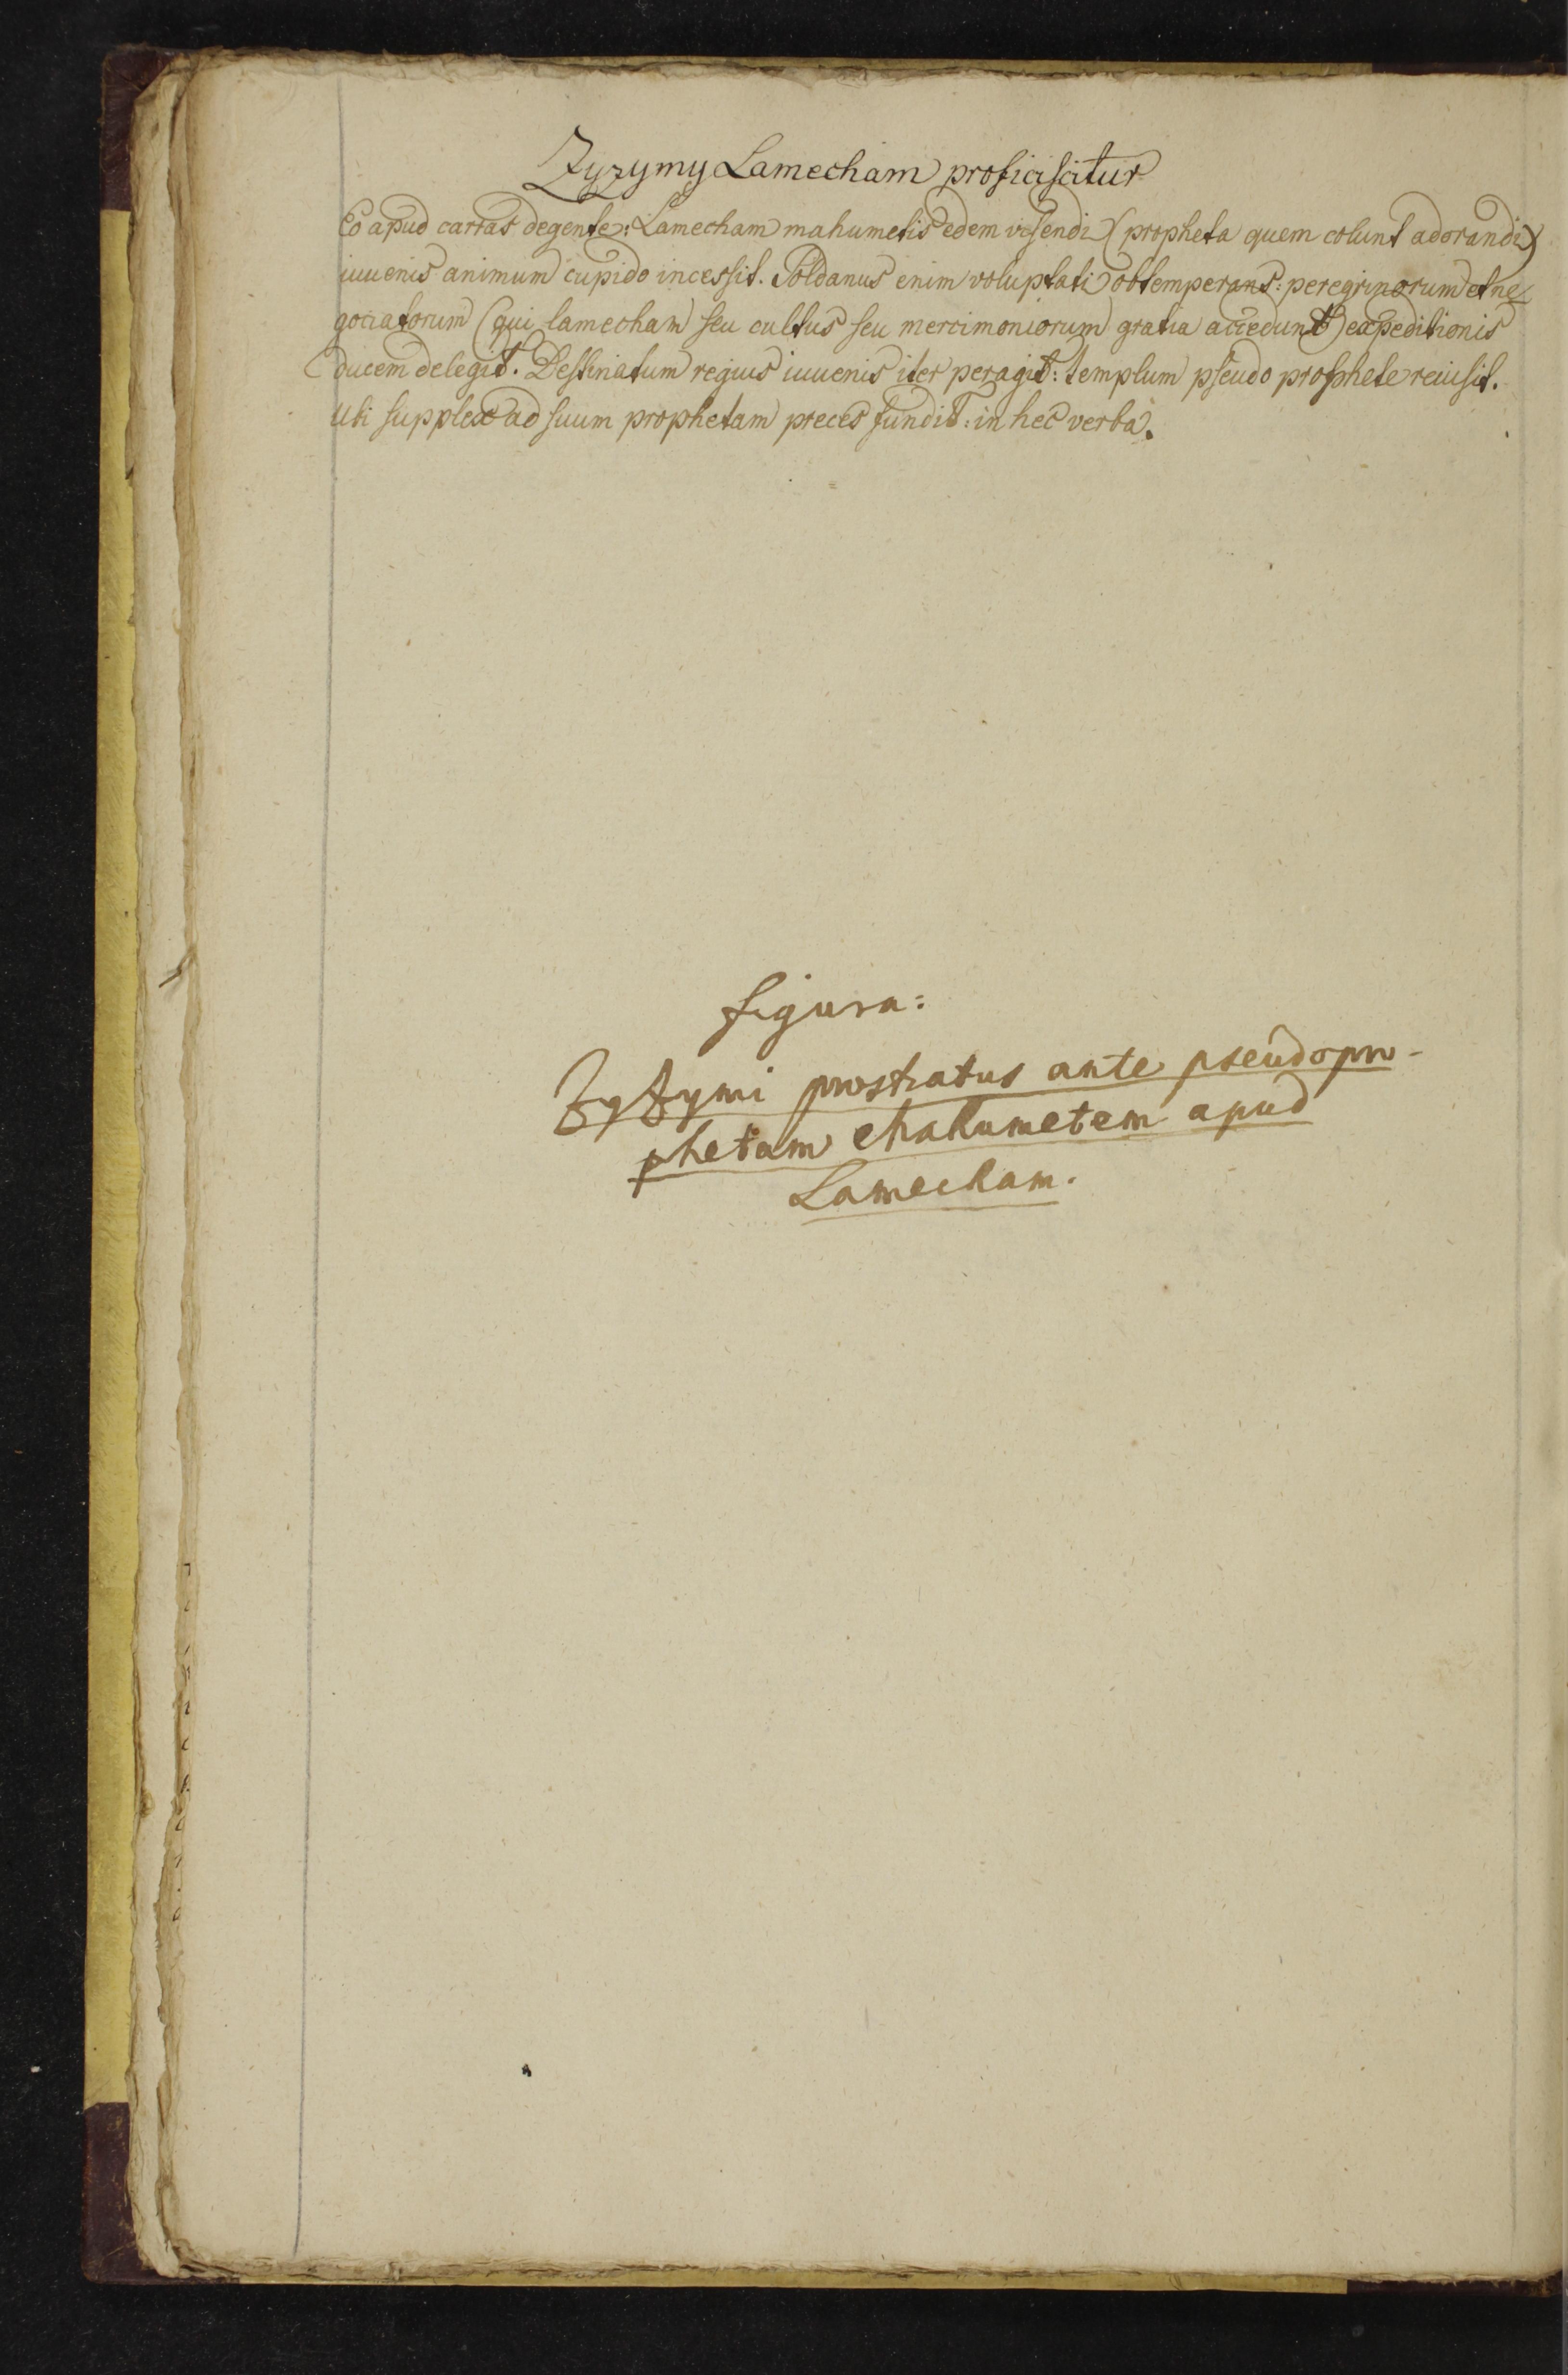 Zyzymy Lamecham proficiscitur
Eo apud carras degente: Lamecham mahumetis edem visendi (propheta quem colunt adorandi)
iuuenis animum cupido incessit. Soldanus enim voluptati obtemperans: peregrinorum et ne
gociatorum (qui lamecham seu cultus seu mercimoniorum gratia accedunt) expeditionis
ducem delegit. Destinatum regius iuuenis iter peragit: templum pseudo prophete reiusit.
Ubi supplex ad suum prophetam preces fundit: in hec verba.
figura:
Zyzymi prostratus ante pseudopro-
phetam Mahumetem apud
Lamecham.